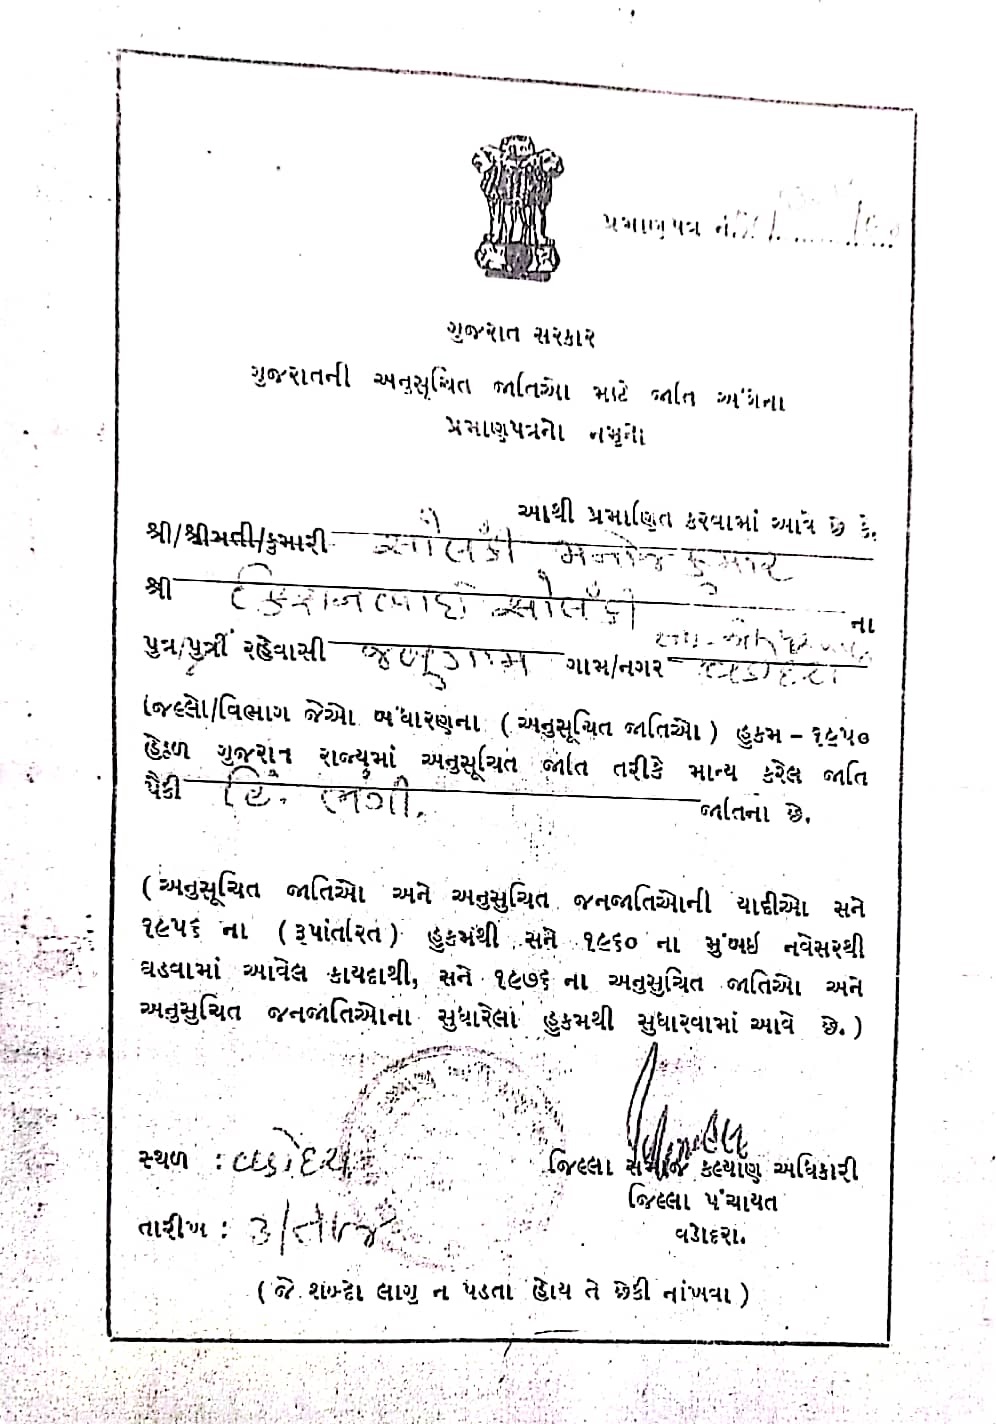 પ્રમાણપત્ર નં.
ગુજરાત સરકાર
ગુજરાતની અનુસૂચિત જાતિઓ માટે જાતિ અંગેના
પ્રમાણપત્રનો નમૂનો
આથી પ્રમાણિત કરવામાં આવે છે કે.
શ્રી/શ્રીમતી/કુમારી સોલંકી મનોજકુમાર
શ્રી કિરાનભાઈ સોલંકી ના
પુત્ર/પુત્રીં રહેવાસી જબુગામ ગામ/નગર વડોદરા
(જિલ્લો/વિભાગ જેઓ બંધારણના (અનુસૂચિત જાતિઓ) હુકમ - ૧૯૫૦
હેઠળ ગુજરાત રાજ્યમાં અનુસૂચિત જાતિ તરીકે માન્ય કરેલ જાતિ
પૈકી હિં. ભંગી. જાતિના છે.
(અનુસૂચિત જાતિઓ અને અનુસુચિત જનજાતિઓની યાદીઓ સને
૧૯૫૬ ના (રૂપાંતરિત) હુકમથી સને ૧૯૬૦ ના મુંબઇ નવેસરથી
ઘડવામાં આવેલ કાયદાથી, સને ૧૯૭૬ ના અનુસુચિત જાતિઓ અને
અનુસુચિત જનજાતિઓના સુધારેલા હુકમથી સુધારવામાં આવે છે.)
સ્થળ : વડોદરા
જિલ્લા સમાજ કલ્યાણ અધિકારી
જિલ્લા પંચાયત
તારીખ :
વડોદરા.
(જે શબ્દો લાગુ ન પડતા હોય તે છેકી નાંખવા)